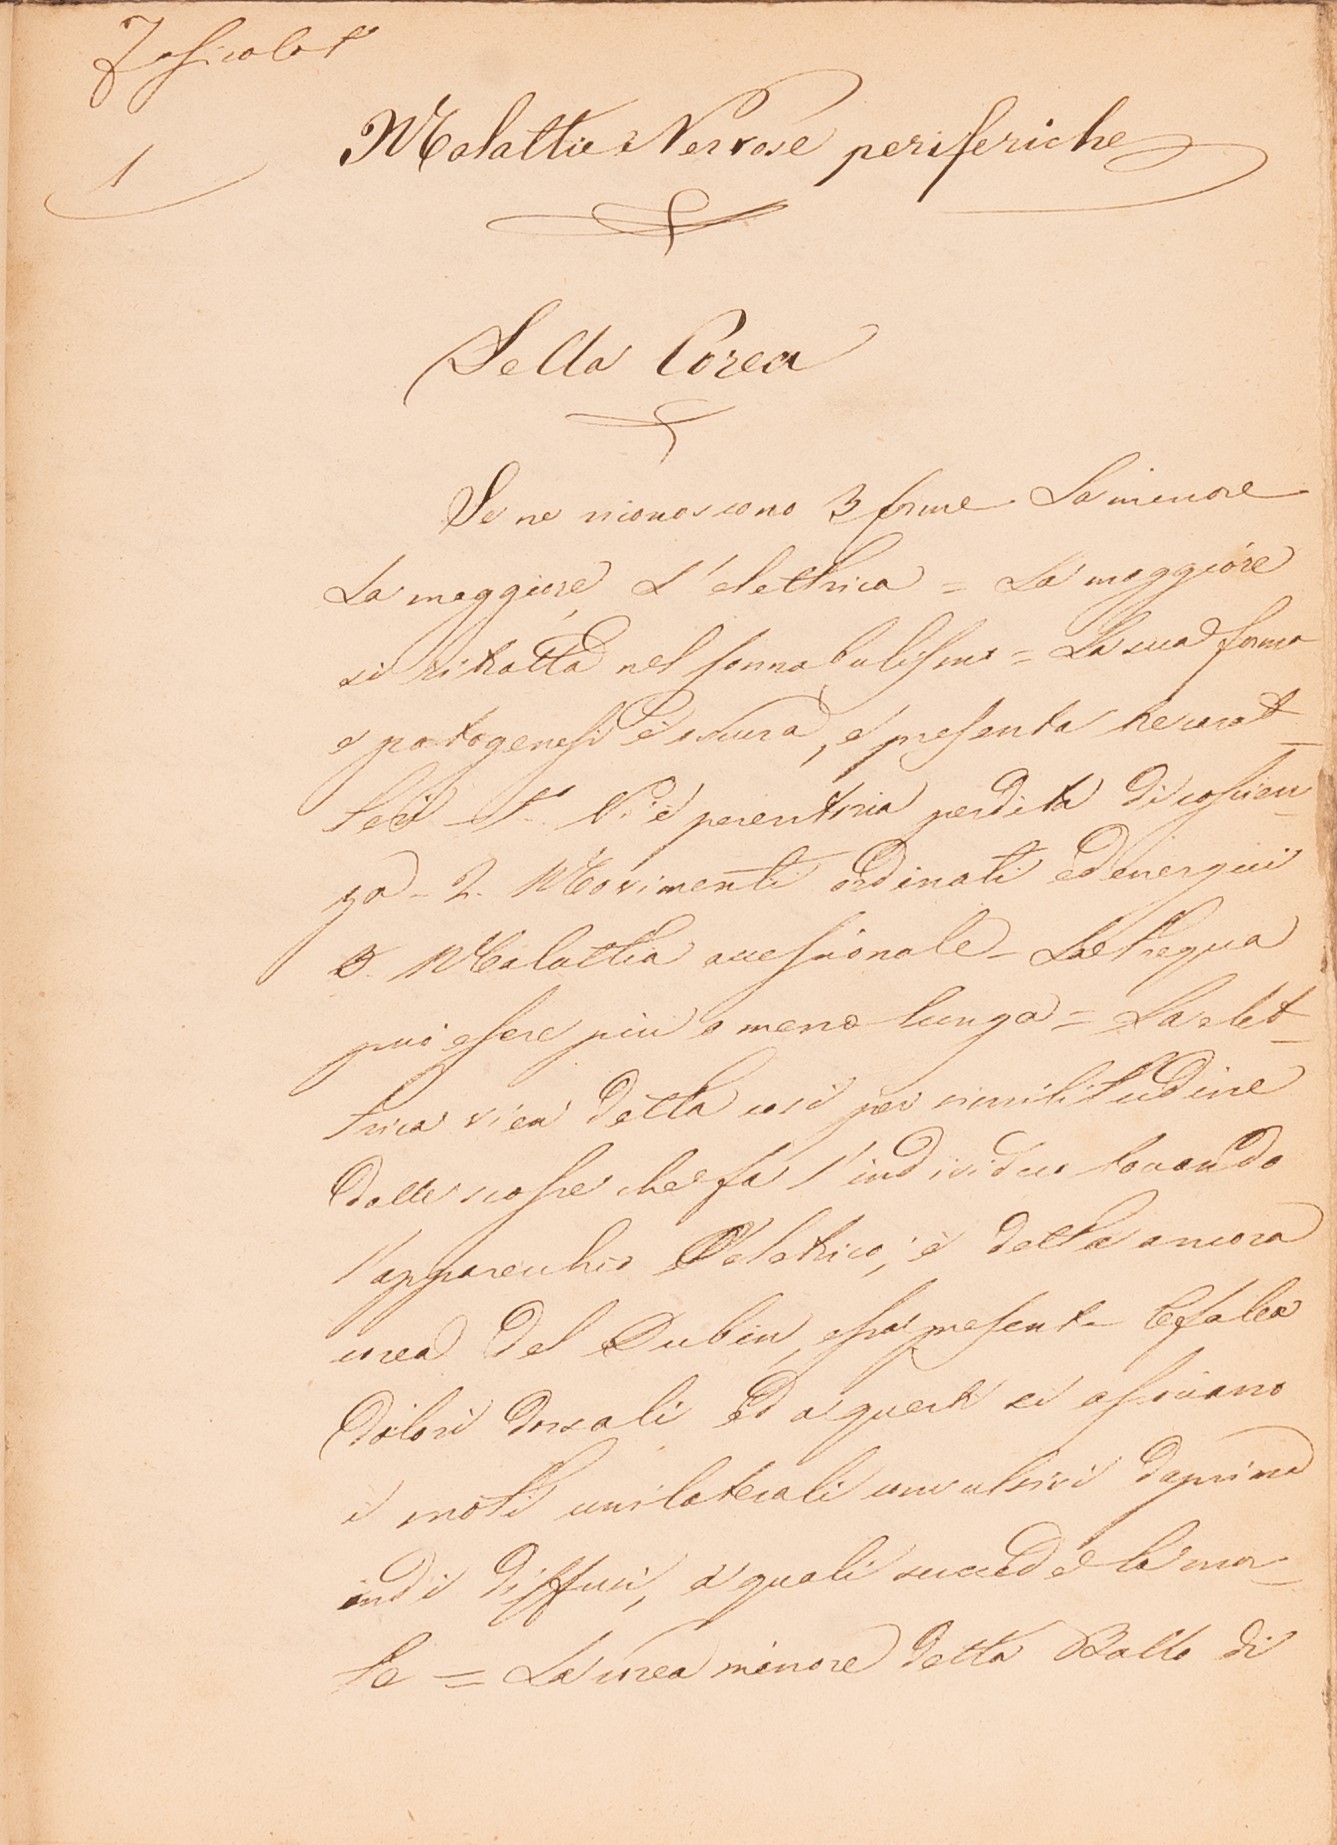 Fascicolo 1º
1
Malattie Nervose periferiche
Della Corea
Se ne riconoscono 3 forme La minore
La maggiore, L'elettrica = La maggiore
si ritratta nel sonnabulismo = La sua forma
e patogenesi è oscura, e presenta tre carat-
teri 1º Vi è perentoria perdita di coscien-
za - 2. Movimenti ordinati ed energici
3. Malattia accessionale - La tregua
può essere più o meno lunga = La elet-
trica vien detta così per similitudine
delle scosse che fa l'individuo toccando
l'apparecchio elettrico; è detta ancora
corea del Dubin, essa presenta Cefalea
dolori dorsali ed a questi si associano
i moti unilaterali convulsivi da prima
indi diffusi, a' quali succede la mor-
te = La corea minore detta Ballo di